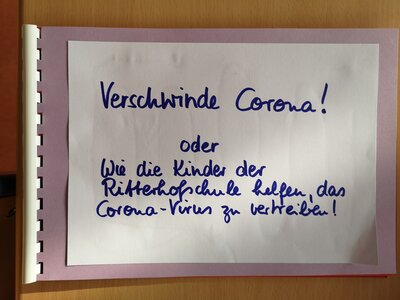 Verschwinde Corona!
oder
Wie die Kinder der
Ritterhofschule helfen, das
Corona-Virus zu vertreiben!